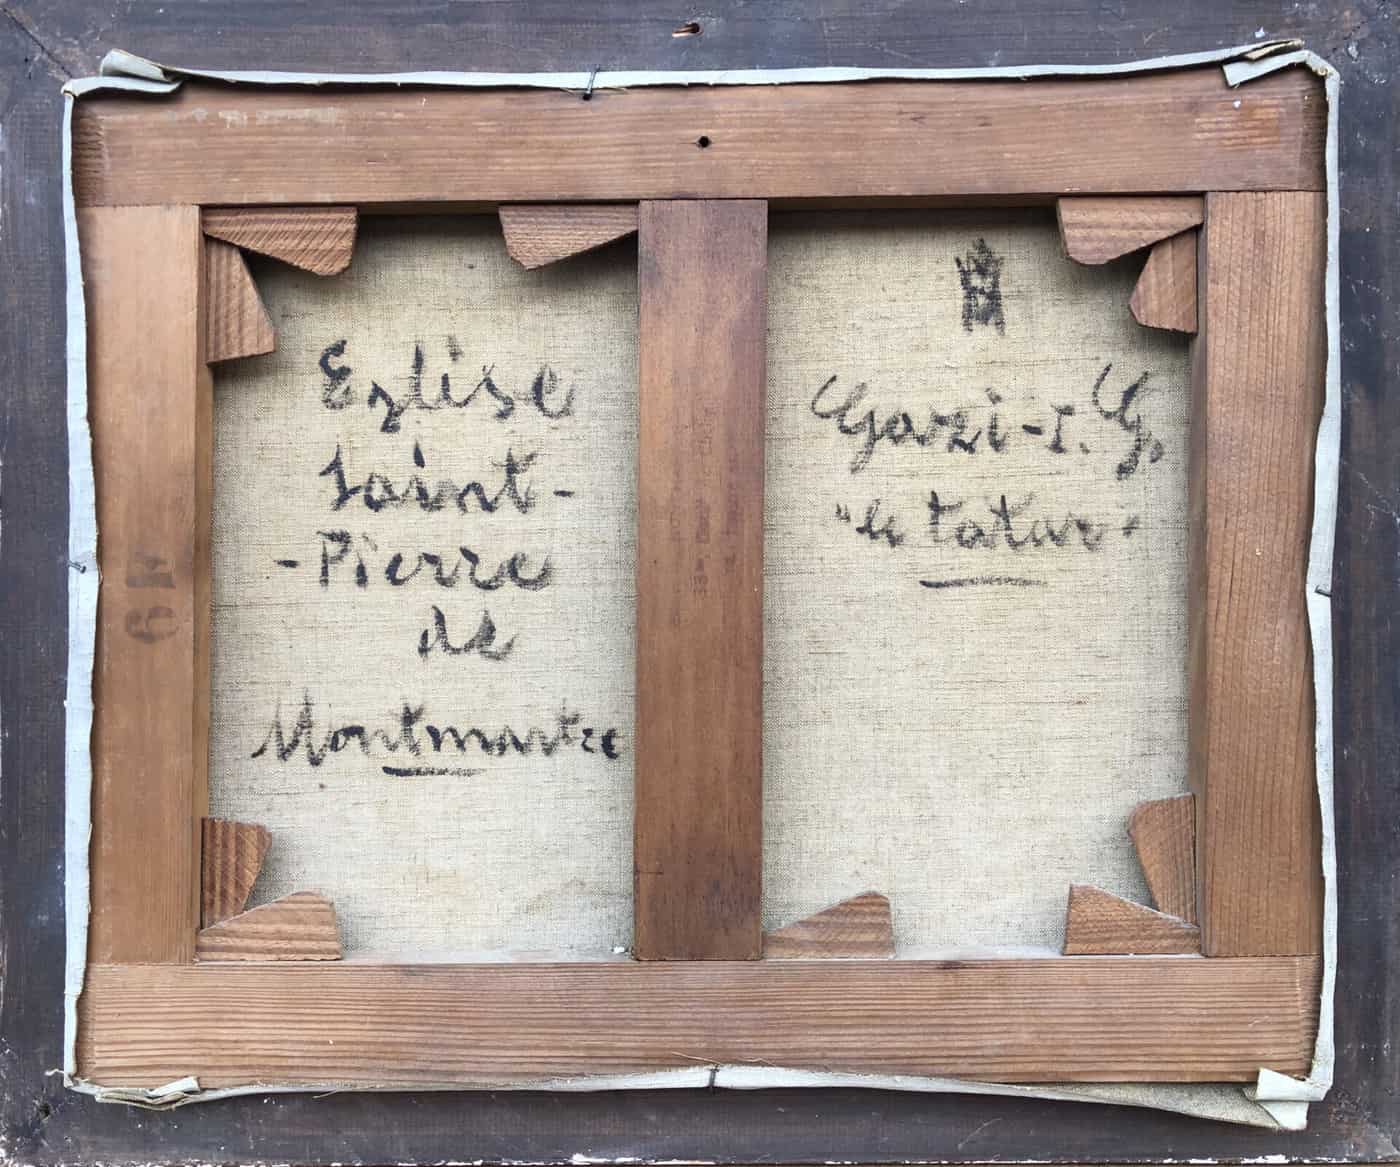 Eglise
Saint-
-Pierre
de
Montmartre
Gazi-I. G.
"le tatar"
6F